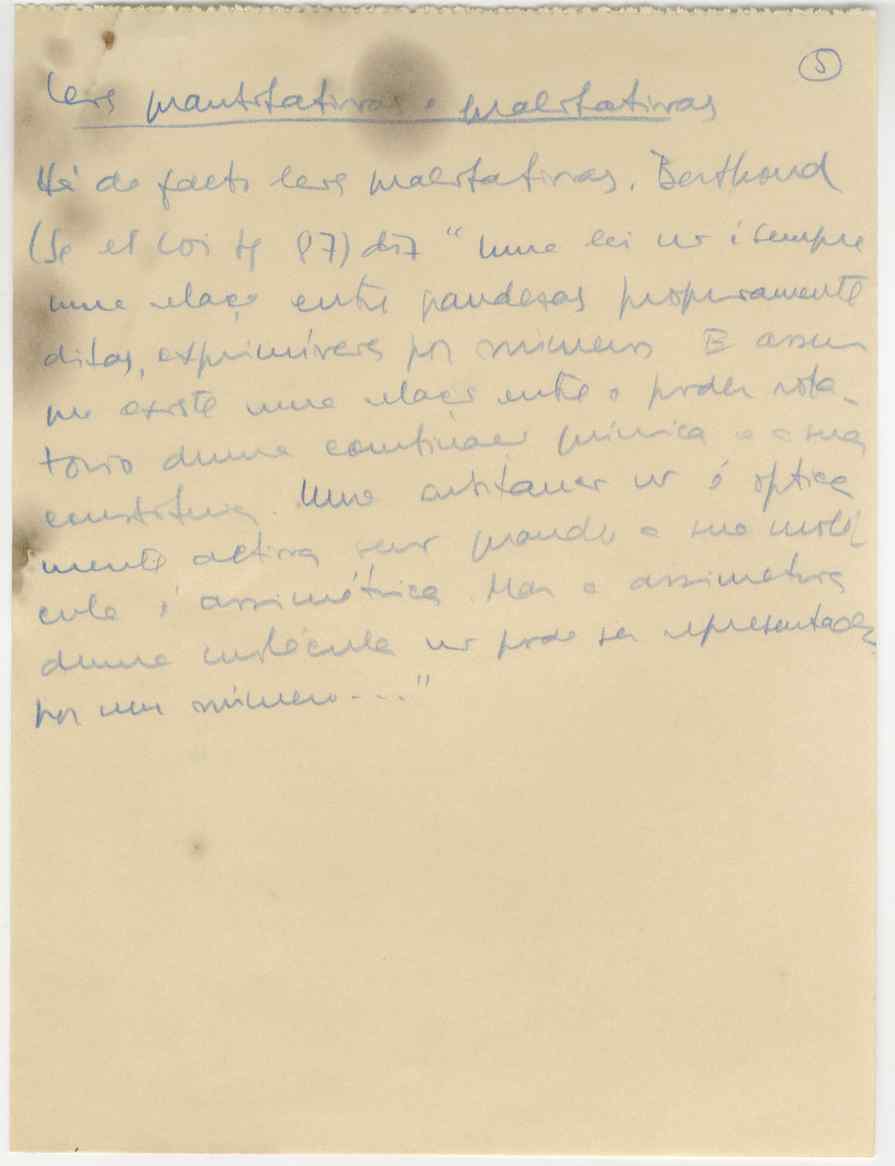 5
Leis quantitativas e qualitativas
Há de facto leis qualitativas. Berthoud
(Sc et Loi pg 87) diz "Uma lei não é sempre
uma relação entre grandezas propriamente
ditas, exprimíveis por números. E assim
que existe uma relação entre o poder rota-
tório duma combinação química e a sua
constituição. Uma substância não é optica
mente activa senão quando a sua molé
cula é assimétrica. Mas a assimetria
duma molécula não pode ser representada
por um número...."